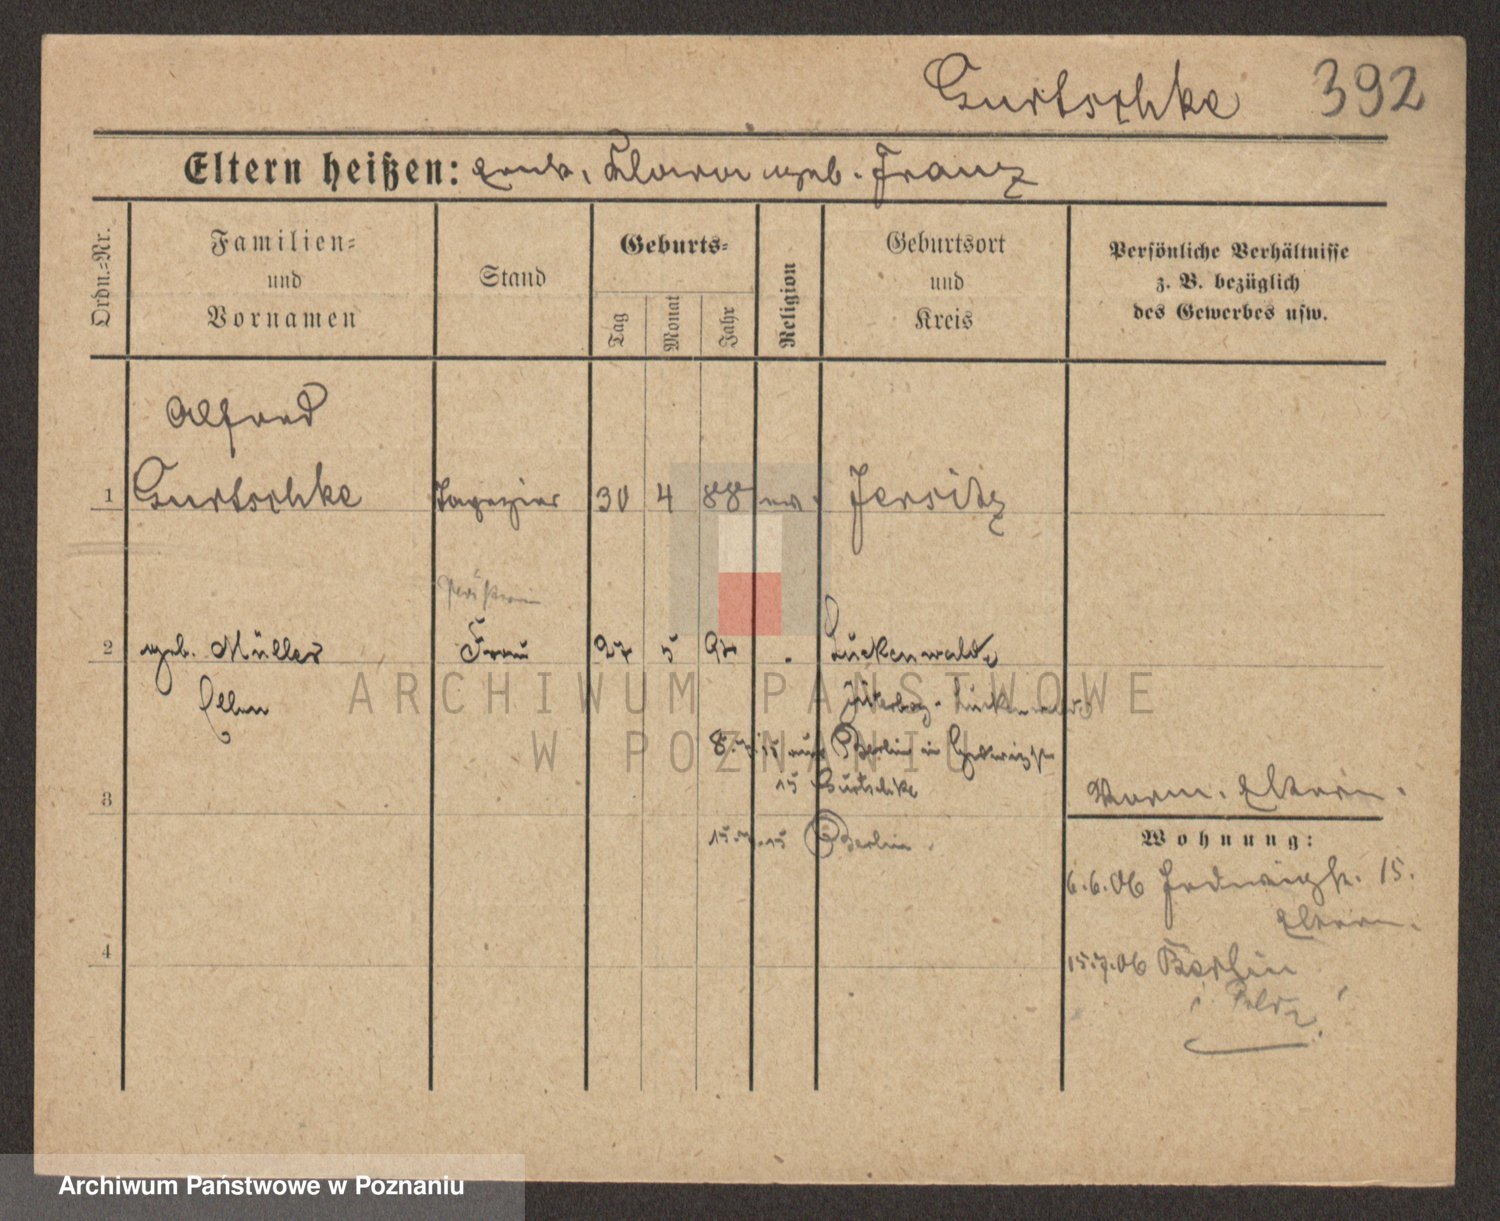 Gurtschke 392
Eltern heißen: Klara geb. Franz
Ordn.=Nr.
Familien=
und
Vornamen
Stand
Geburts=
Tag
Monat
Jahr
Religion
Geburtsort
und
Kreis
Persönliche Verhältnisse
z. B. bezüglich
des Gewerbes usw.
Alfred
1 Gurtschke Tapezier 30 4 88 ev. Jersitz
2 geb. Müller Frau 27 5 Luckenwalde
Ellen Jüterbog-Luckenwalde
Berlin in
15 Gurtschke
3
Vorm. Eltern.
15.7.15 Berlin.
Wohnung:
6.6.06 Hedwigstr. 15.
Eltern.
4
15.7.06 Berlin
ARCHIWUM PAŃSTWOWE
W POZNANIU
Archiwum Państwowe w Poznaniu